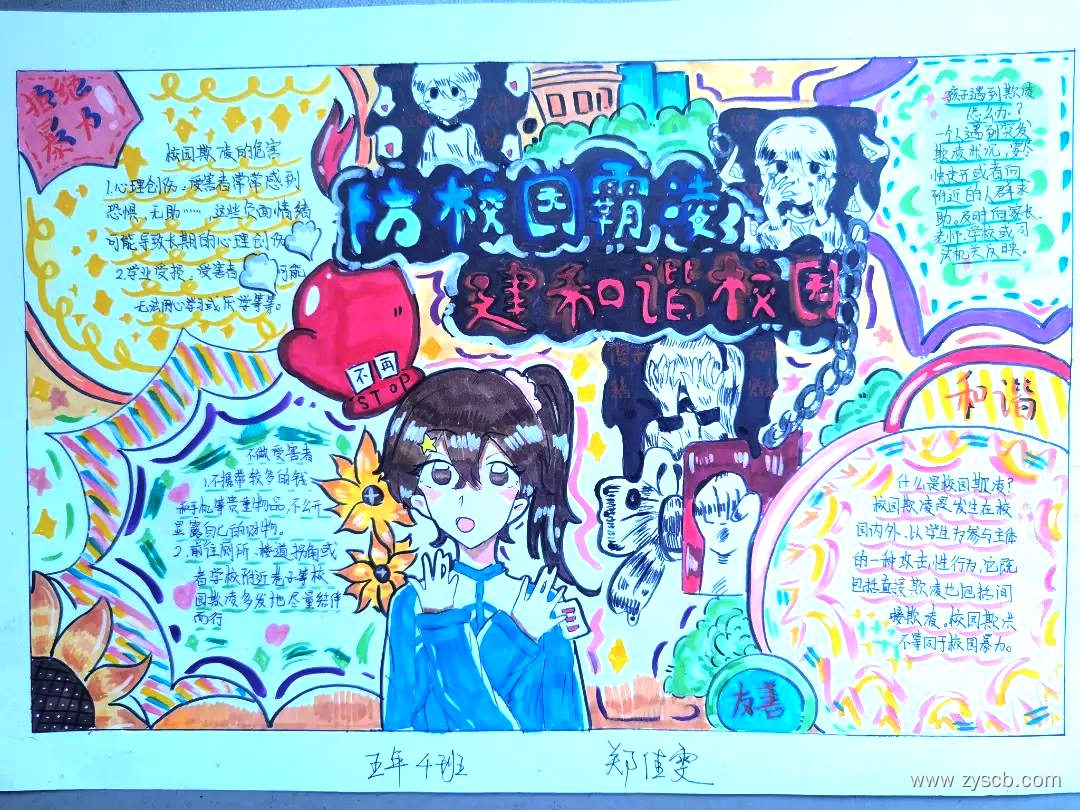 拒绝
暴力
防校园霸凌
建和谐校园
校园欺凌的危害
1.心理创伤,受害者常常感到
恐惧、无助……这些负面情绪
可能导致长期的心理创伤
2.学业受损,受害者 可能
无法用心学习或厌学等等。
孩子遇到欺凌
怎么办?
一个人遇到突发
欺凌状况,要尽
快走开或者向
附近的人群求
助。及时向家长、
老师、学校或司
法机关反映。
不再
STOP
和谐
不做受害者
1.不携带较多的钱
和手机等贵重物品,不公开
显露自己的财物。
2.前往厕所、楼道拐角或
者学校附近巷子等校
园欺凌多发地尽量结伴
而行
什么是校园欺凌?
校园欺凌是发生在校
园内外、以学生为参与主体
的一种攻击性行为,它既
包括直接欺凌也包括间
接欺凌。校园欺凌
不等同于校园暴力。
友善
五年4班 郑佳雯
www.zyscb.com